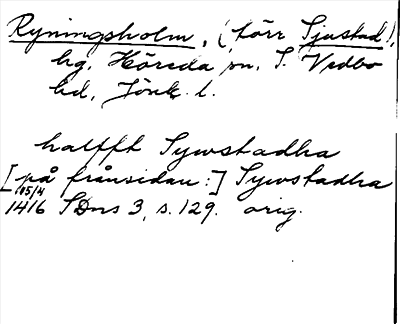 Ryningsholm, (förr Sjustad),
hg, Höreda sn, S. Vedbo
hd, Jönk. l.
halfft Sywstadha
[på frånsidan:] Sywstadha
1416 15/4 SDns 3, s. 129. orig.